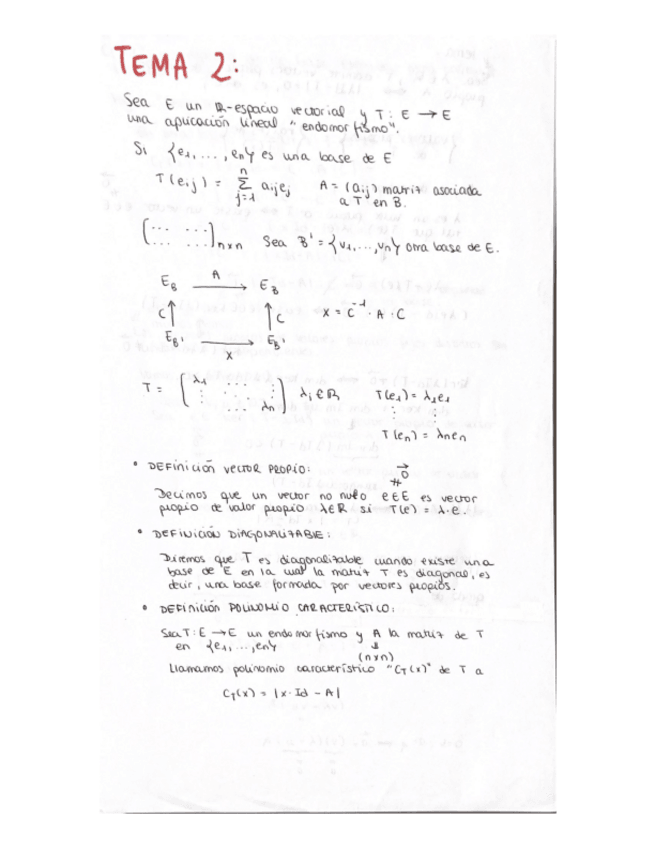 TEMA 2:
Sea E un R-espacio vectorial y T: E → E
una aplicación lineal "endomorfismo".
Si {e1, ..., en} es una base de E
T(eij) = n∑j=1 aijej   A = (aij) matriz asociada
a T en B.
[... ...]nxn   Sea B' = {v1, ..., vn} otra base de E.
EB  A→  EB
C↑  ↑C   X = C⁻¹ · A · C
EB'  →  EB'
X
T = [λ1 ... ⋮ ⋮ ... λn]   λi ∈ R   T(e1) = λ1e1
⋮ ⋮
T(en) = λnen
• DEFINICIÓN VECTOR PROPIO:   →0
≠
Decimos que un vector no nulo e∈E es vector
propio de valor propio λ∈R si T(e) = λ·e.
• DEFINICIÓN DIAGONALIZABLE:
Diremos que T es diagonalizable cuando existe una
base de E en la cual la matriz T es diagonal, es
decir, una base formada por vectores propios.
• DEFINICIÓN POLINOMIO CARACTERÍSTICO:
Sea T: E → E un endomorfismo y A la matriz de T
en {e1, ..., en}   ⇓
(nxn)
Llamamos polinomio característico "CT(x)" de T a
CT(x) = |x · Id - A|